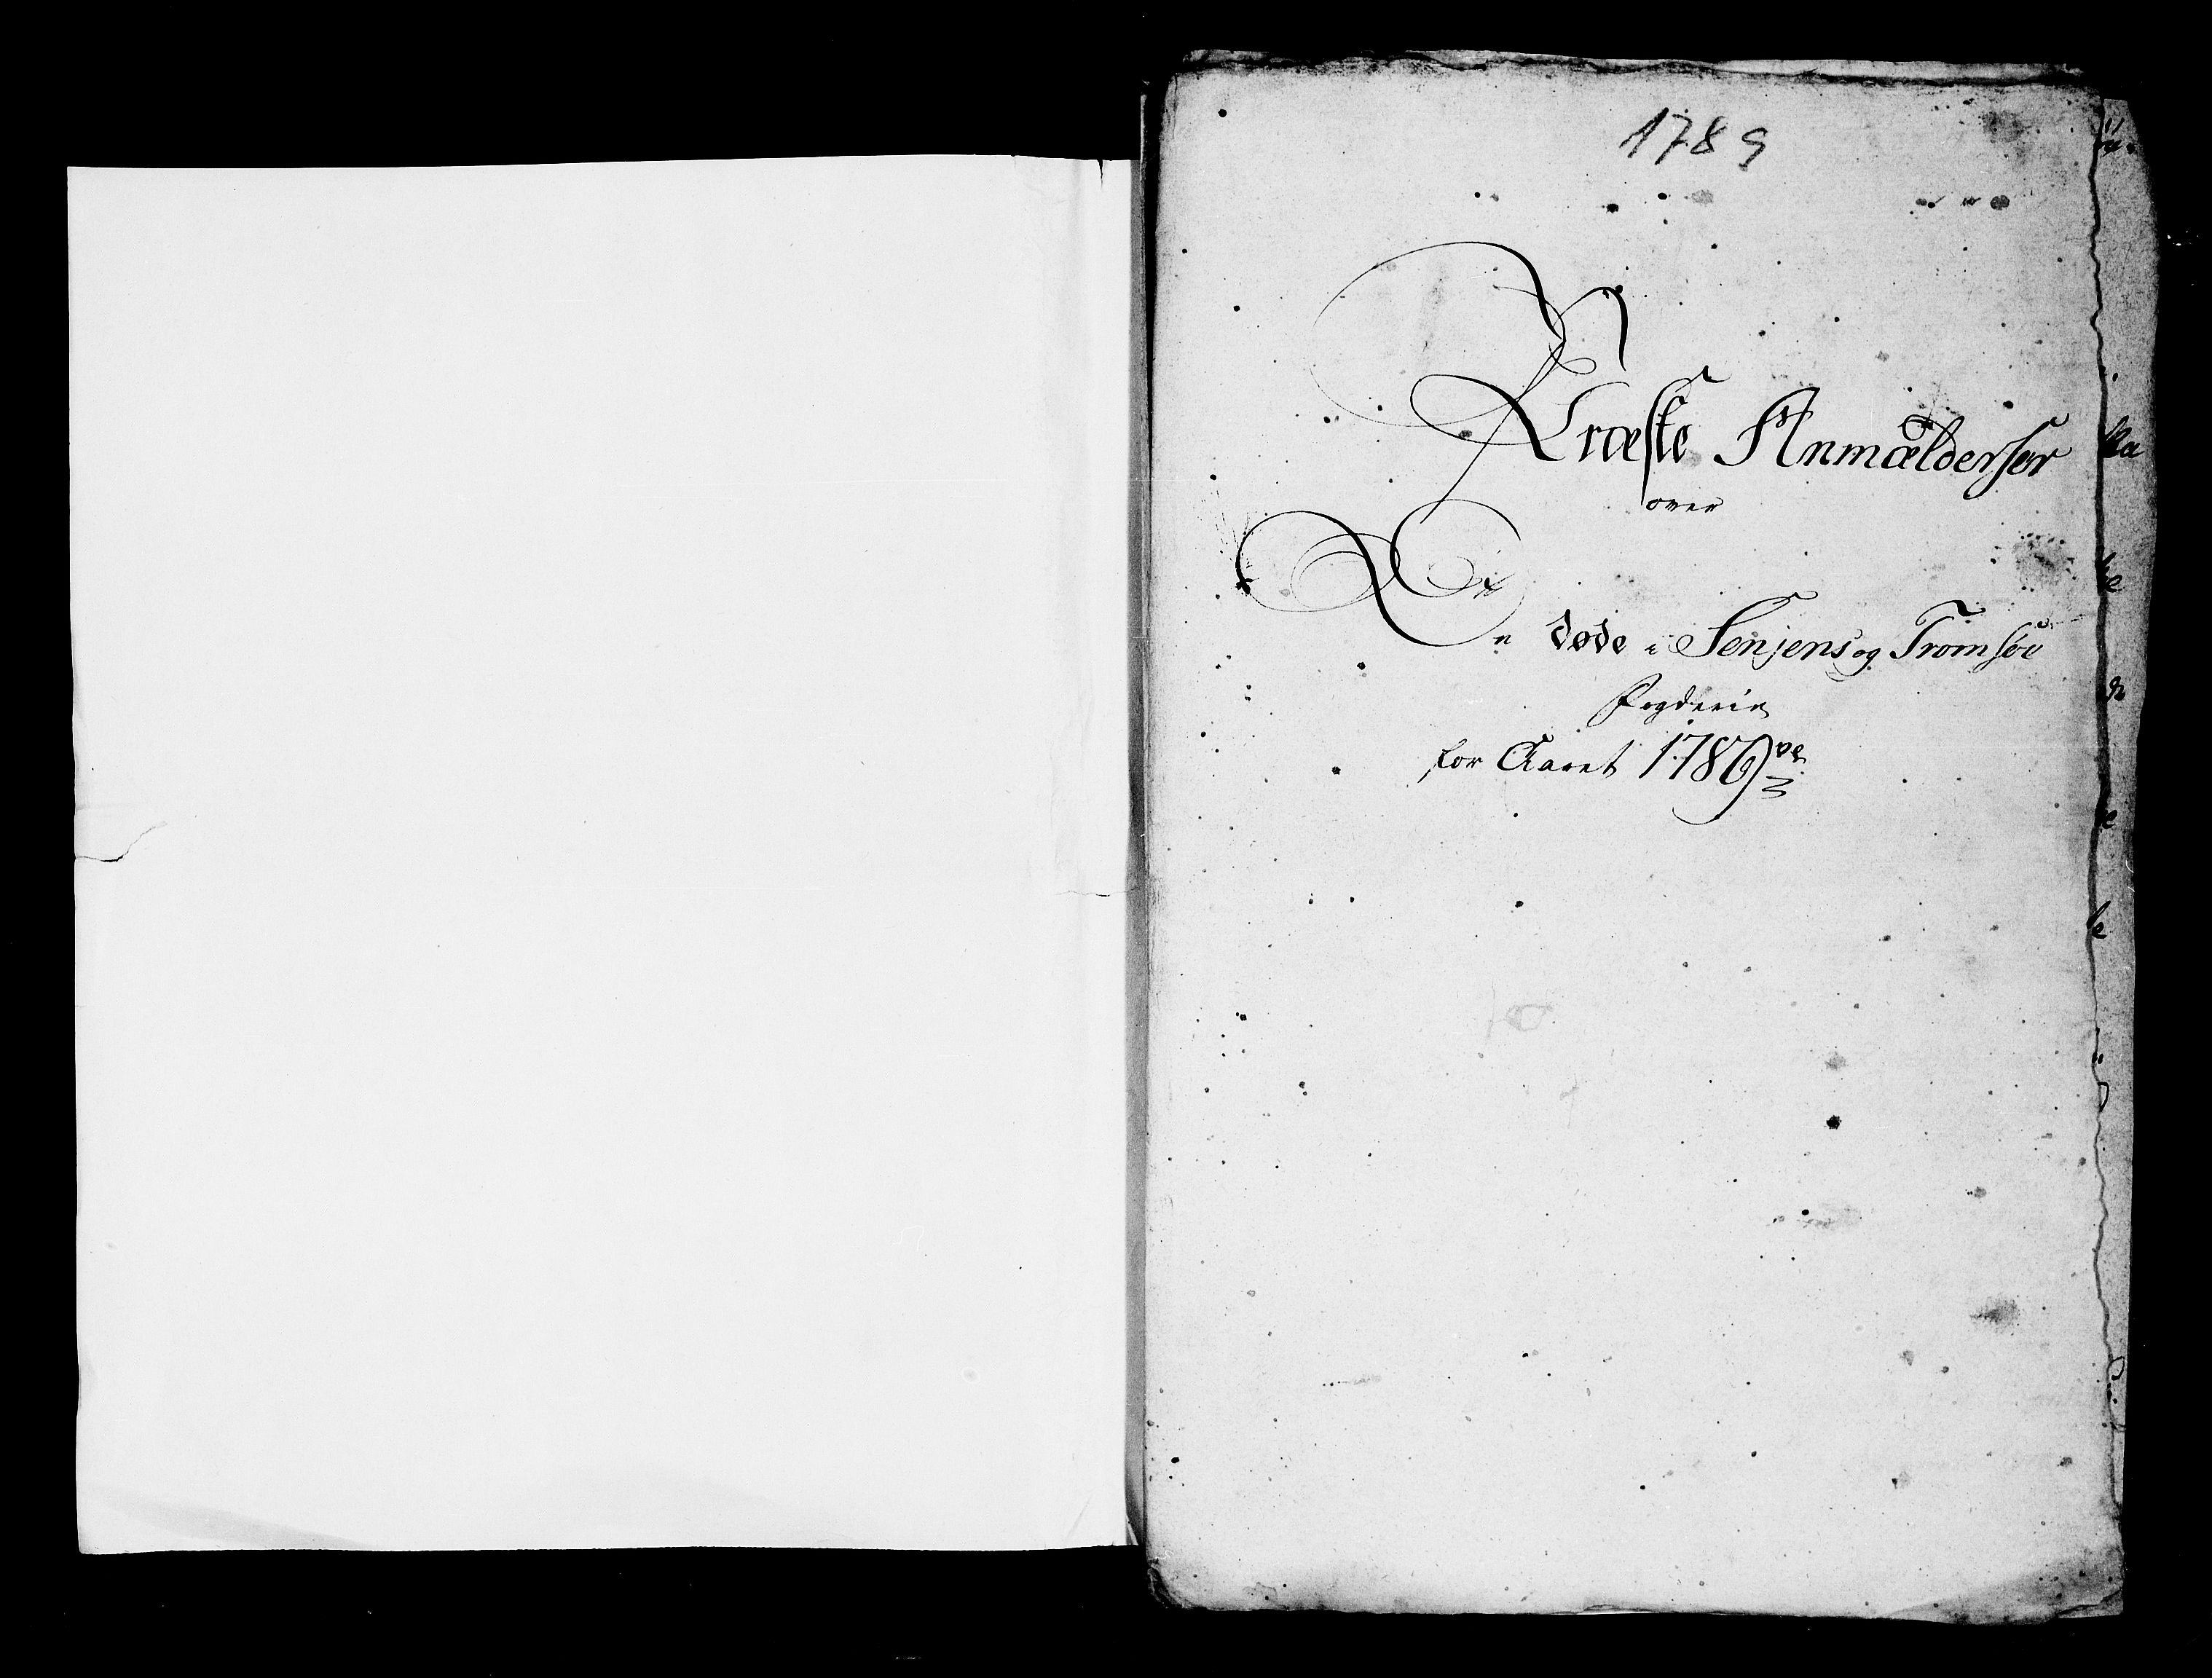 1789
Præste Anmældelser
over
De døde i Senjens og Tromsøe
Fogderie
for Aaret 1789ve